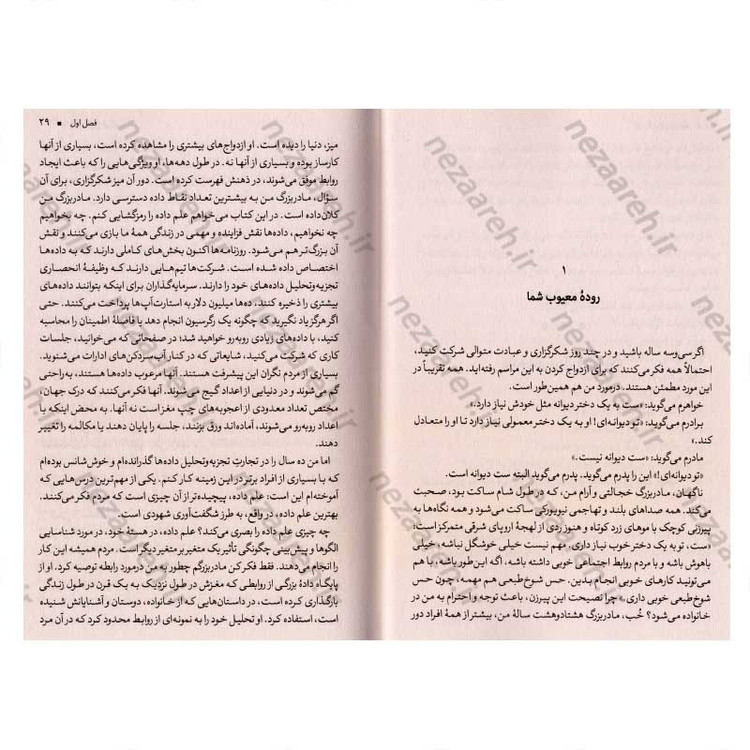 ۱
رودهٔ معیوب شما
اگر سی‌وسه ساله باشید و در چند روز شکرگزاری و عبادت متوالی شرکت کنید،
احتمالاً همه فکر می‌کنند که برای ازدواج کردن به این مراسم رفته‌اید. همه تقریباً در
این مورد مطمئن هستند. درمورد من هم همین‌طور است.
خواهرم می‌گوید: «ست به یک دختر دیوانه مثل خودش نیاز دارد.»
برادرم می‌گوید: «تو دیوانه‌ای! او به یک دختر معمولی نیاز دارد تا او را متعادل
کند.»
مادرم می‌گوید: «ست دیوانه نیست.»
«تو دیوانه‌ای!» این را پدرم می‌گوید. پدرم می‌گوید البته ست دیوانه است.
ناگهان، مادربزرگ خجالتی و آرام من، که در طول شام ساکت بود، صحبت
می‌کند. همه صداهای بلند و تهاجمی نیویورکی ساکت می‌شود و همه نگاه‌ها به
پیرزنی کوچک با موهای زرد کوتاه و هنوز ردی از لهجهٔ اروپای شرقی متمرکز است:
«ست، تو به یک دختر خوب نیاز داری. مهم نیست خیلی خوشگل نباشه، خیلی
باهوش باشه و با مردم روابط اجتماعی خوبی داشته باشه، اگه این‌طور باشه، با هم
می‌تونید کارهای خوبی انجام بدین. حس شوخ‌طبعی هم مهمه، چون حس
شوخ‌طبعی خوبی داری.» چرا نصیحت این پیرزن، باعث توجه و احترام به من در
خانواده می‌شود؟ خُب، مادربزرگ هشتادوهشت سالهٔ من، بیشتر از همهٔ افراد دور
فصل اول ■ ۲۹
میز، دنیا را دیده است. او ازدواج‌های بیشتری را مشاهده کرده است، بسیاری از آنها
کارساز بوده و بسیاری از آنها نه. در طول دهه‌ها، او ویژگی‌هایی را که باعث ایجاد
روابط موفق می‌شوند، در ذهنش فهرست کرده است. دور آن میز شکرگزاری، برای آن
سؤال، مادربزرگ من به بیشترین تعداد نقاط داده دسترسی دارد. مادربزرگ من
کلان‌داده است. در این کتاب می‌خواهم علم داده را رمزگشایی کنم. چه بخواهیم
چه نخواهیم، داده‌ها نقش فزاینده و مهمی در زندگی همهٔ ما بازی می‌کنند و نقش
آن بزرگ‌تر هم می‌شود. روزنامه‌ها اکنون بخش‌های کاملی دارند که به داده‌ها
اختصاص داده شده است. شرکت‌ها تیم‌هایی دارند که وظیفهٔ انحصاری
تجزیه‌وتحلیل داده‌های خود را دارند. سرمایه‌گذاران برای اینکه بتوانند داده‌های
بیشتری را ذخیره کنند، ده‌ها میلیون دلار به استارت‌آپ‌ها پرداخت می‌کنند. حتی
اگر هرگز یاد نگیرید که چگونه یک رگرسیون انجام دهد یا فاصلهٔ اطمینان را محاسبه
کنید، با داده‌های زیادی روبه‌رو خواهید شد؛ در صفحاتی که می‌خوانید، جلسات
کاری که شرکت می‌کنید، شایعاتی که در کنار آب‌سردکن‌های ادارات می‌شنوید.
بسیاری از مردم نگران این پیشرفت هستند. آنها مرعوب داده‌ها هستند، به‌راحتی
گم می‌شوند و در دنیایی از اعداد گیج می‌شوند. آنها فکر می‌کنند که درک جهان،
مختص تعداد معدودی از اعجوبه‌های چپ مغز است نه آنها. به محض اینکه با
اعداد روبه‌رو می‌شوند، آماده‌اند ورق بزنند، جلسه را پایان دهند یا مکالمه را تغییر
دهند.
اما من ده سال را در تجارتِ تجزیه‌وتحلیل داده‌ها گذرانده‌ام و خوش‌شانس بوده‌ام
که با بسیاری از افراد برتر در این زمینه کار کنم. یکی از مهم‌ترین درس‌هایی که
آموخته‌ام این است: علم داده، پیچیده‌تر از آن چیزی است که مردم فکر می‌کنند.
بهترین علم داده، در واقع، به طرز شگفت‌آوری شهودی است.
چه چیزی علم داده را بصری می‌کند؟ علم داده، در هستهٔ خود، در مورد شناسایی
الگوها و پیش‌بینی چگونگی تأثیر یک متغیر بر متغیر دیگر است. مردم همیشه این کار
را انجام می‌دهند. فقط فکر کن مادربزرگم چطور به من درمورد رابطه توصیه کرد. او از
پایگاه دادهٔ بزرگی از روابطی که مغزش در طول نزدیک به یک قرن در طول زندگی
بارگذاری کرده است، در داستان‌هایی که از خانواده، دوستان و آشنایانش شنیده
است، استفاده کرد. او تحلیل خود را به نمونه‌ای از روابط محدود کرد که در آن مرد
nezaareh.ir